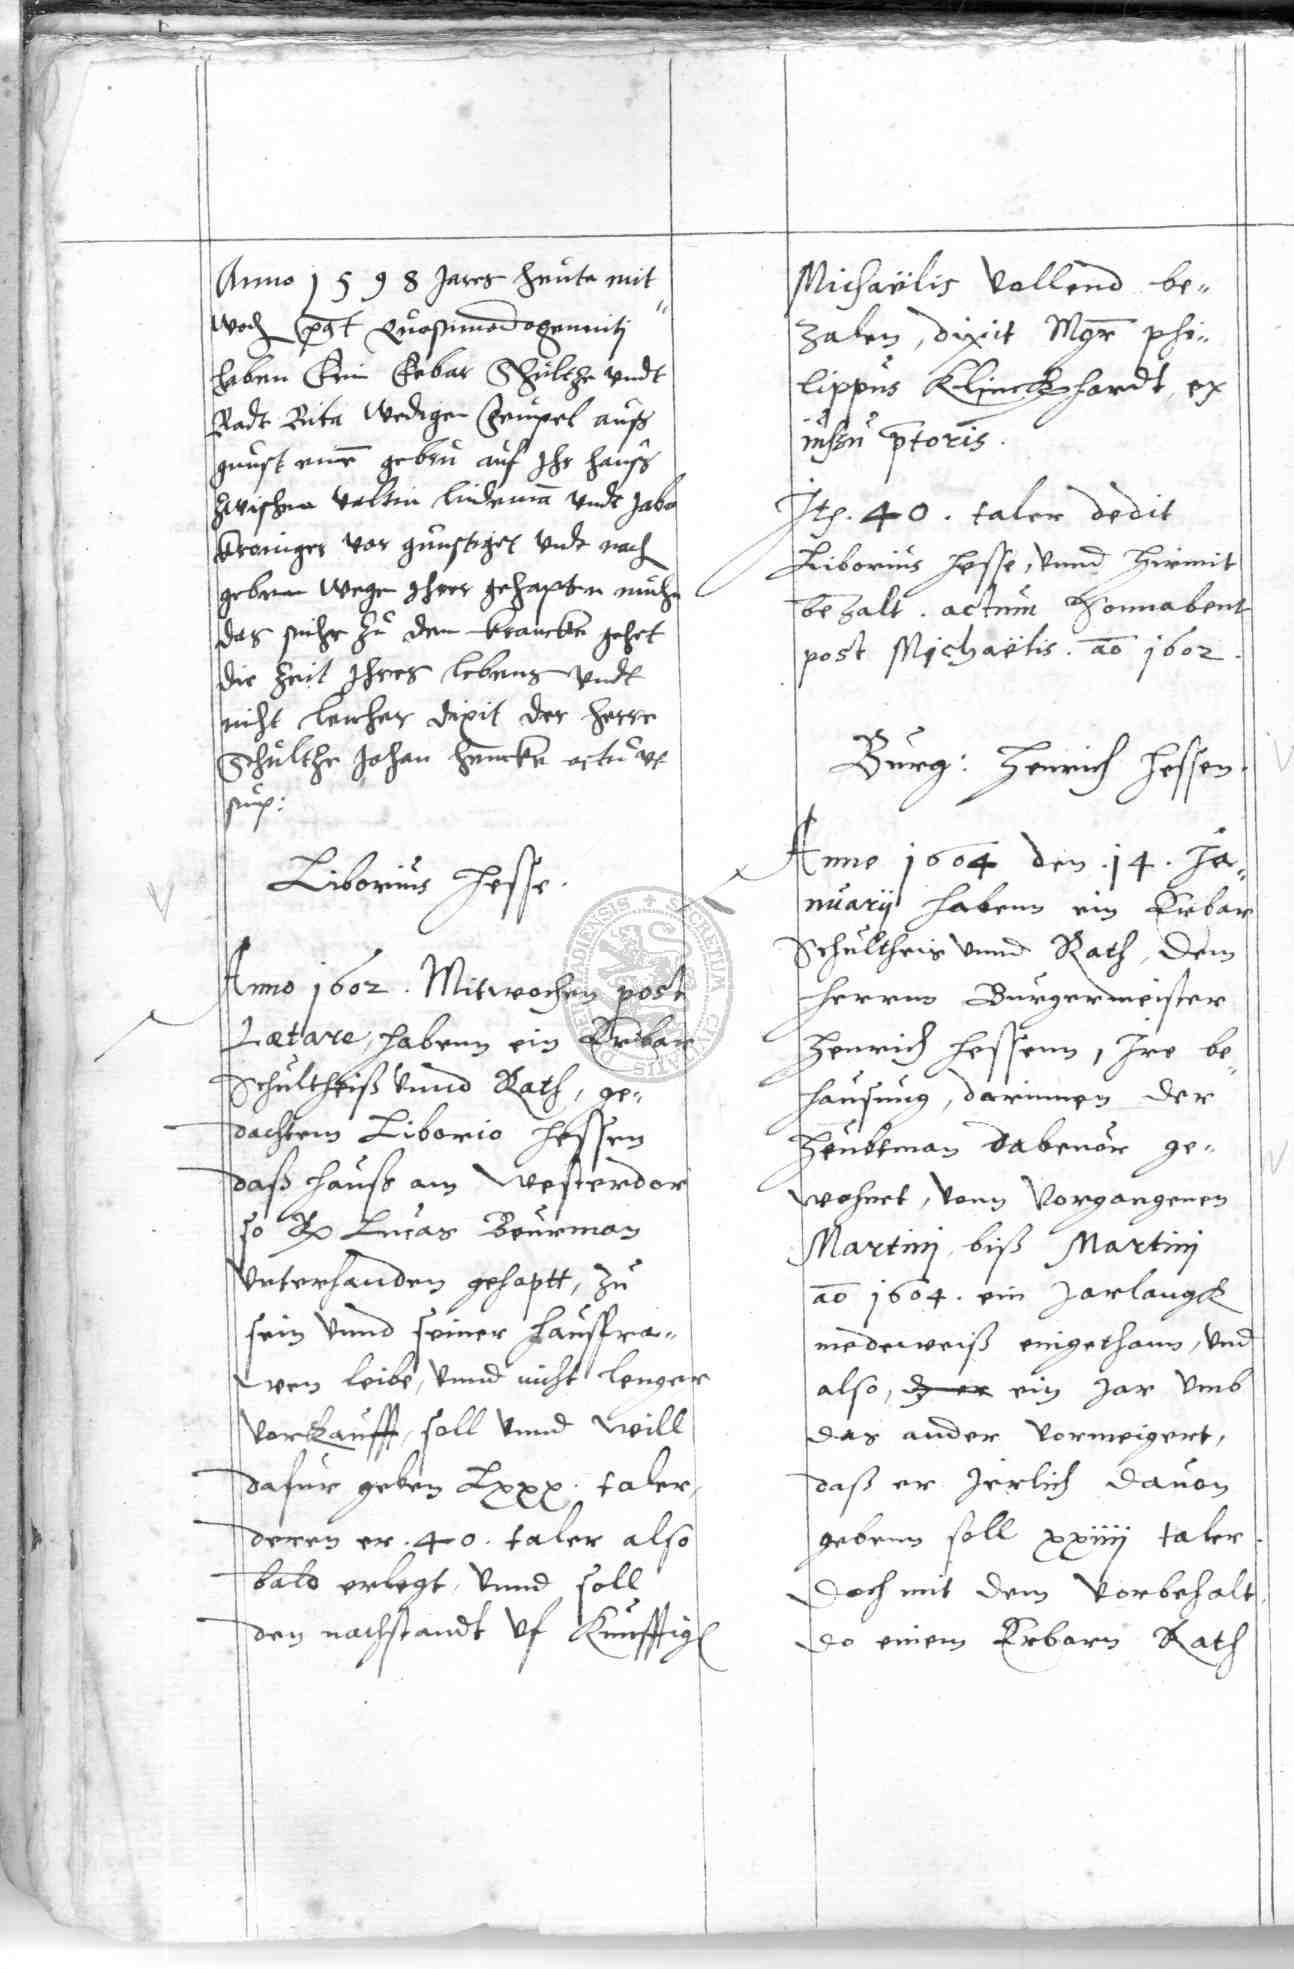 Anno 1598 Jares heute mit„
woch pōt Quasimodogeniti
haben Ein Erbar Schultze vndt
Radt Wedigen auß
gunst auf Ihr hauß
zwischen valtin lindemā vndt Jabo
Kroniger vor gunstiget vndt nach
geben wege Ihrer gehapten muhe
das zu den krancken gehet
die Zeit Ihres lebens vndt
nicht lencher dixit der herre
Schultze Johan hencke actu vt
sup:
Liborius Hesse.
Anno 1602. Mitwochen post
Lætare, habenn ein Erbar
Schultheiß vnnd Rath, ge„
dachtem Liborio Hessen
daß hauß am Westerdor
so Lucas Beurman
vnterhanden gehaptt, zu
sein vnnd seiner haußfra„
wen leibe, vnnd nicht lenger
vorkaufft, soll vnnd will
dafur geben Lxxx. taler,
deren er. 40. taler also
bald erlegt, vnnd soll
den nachstandt vf Kunfftigk
Michaëlis vollend be„
zalen, dixit Mgr̄ phi„
lippus Klinckhardt, ex
iussu p̄toris.
Itē. 40. taler dedit
Liborius Hesse, vnnd hirmit
bezalt. actum Sonnabent
post Michaëlis. aō 1602.
Burg: Henrich Hessen.
Anno 1604 den. 14. Ja„
nuarij habenn ein Erbar
Schultheis vnnd Rath, dem
herrnn Burgermeister
Henrich Hessenn, Ire be„
hausung, darinnen der
Heubtman dabeuor ge„
wohnet, vonn vorgangenen
Martinj, biß Martinj
aō 1604. ein Jarlangk
medeweiß eingethann, vnd
also, ein Jar vmb
das ander vormeigert,
daß er Jerlich dauon
gebenn soll xxiiij taler.
Doch mit dem vorbehalt,
do einem Erbarn Rath